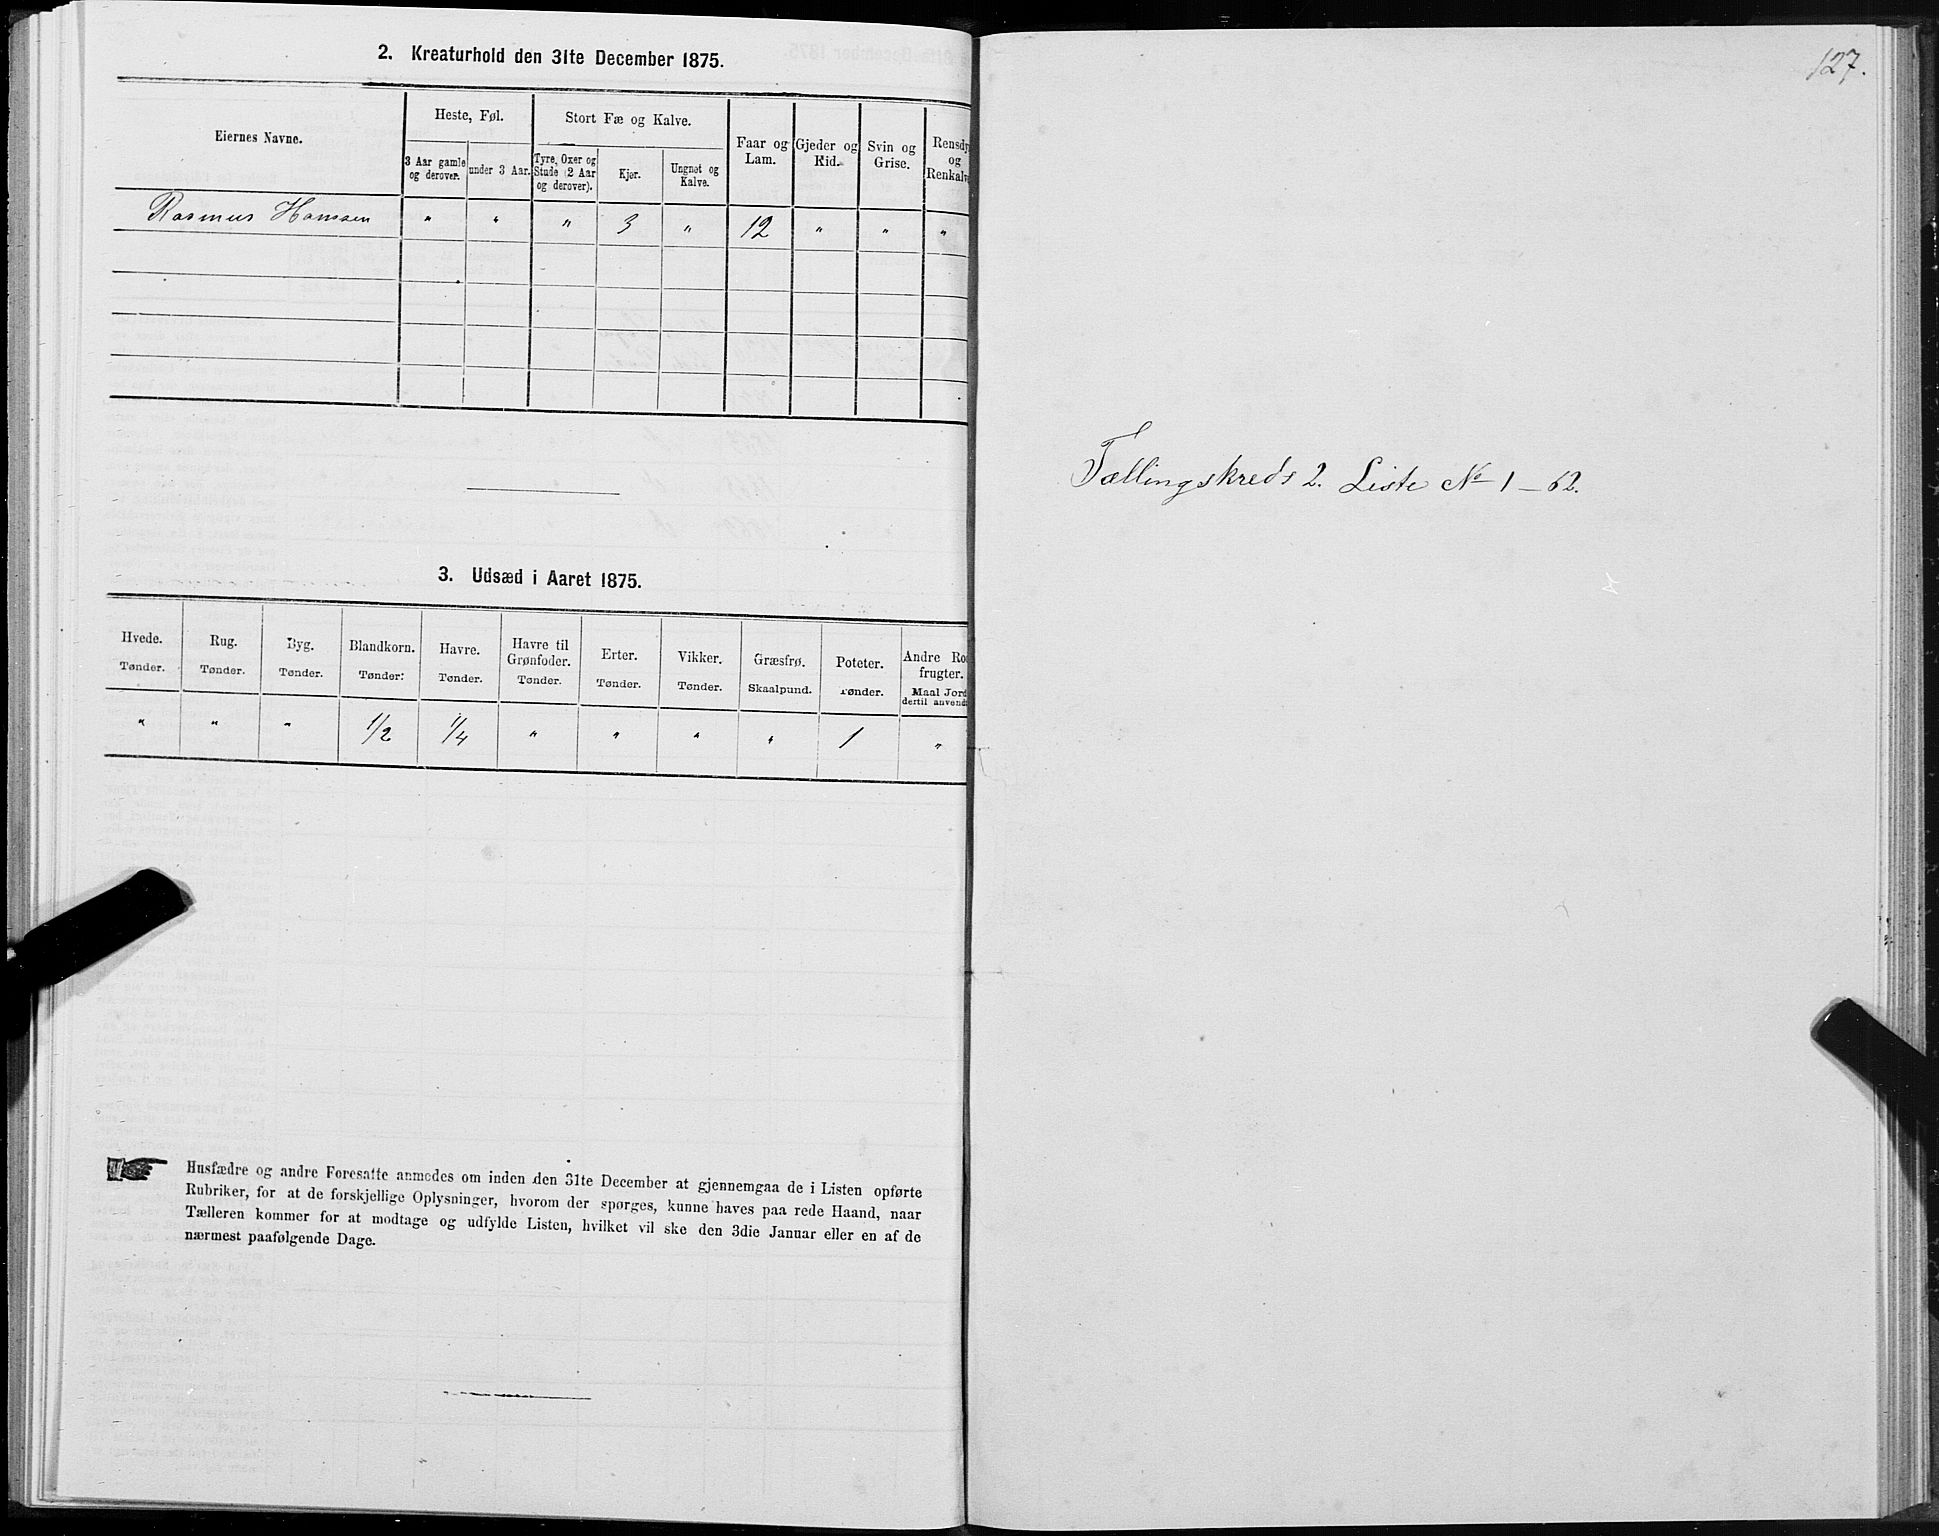 2. Kreaturhold den 31te December 1875.
Eiernes Navne.
Heste, Føl.
3 Aar gamle og derover.
under 3 Aar.
Stort Fæ og Kalve.
Tyre, Oxer og Stude (2 Aar og derover).
Kjør.
Ungnøt og Kalve.
Faar og Lam.
Gjeder og Kid.
Svin og Grise.
Rensdy
og
Renkalv
Rasmus Hanssen " " " 3 " 12 " " "
3. Udsæd i Aaret 1875.
Hvede. Tønder.
Rug. Tønder.
Byg. Tønder.
Blandkorn. Tønder.
Havre. Tønder.
Havre til Grønfoder. Tønder.
Erter. Tønder.
Vikker. Tønder.
Græsfrø. Skaalpund.
Poteter. Tønder.
Andre Ro
frugter.
Maal Jord
dertil anvend
" " " 1/2 1/4 " " " " 1 "
Husfædre og andre Foresatte anmodes om inden den 31te December at gjennemgaa de i Listen opførte
Rubriker, for at de forskjellige Oplysninger, hvorom der spørges, kunne haves paa rede Haand, naar
Tælleren kommer for at modtage og udfylde Listen, hvilket vil ske den 3die Januar eller en af de
nærmest paafølgende Dage.
127.
Tællingskreds 2. Liste No 1 – 62.